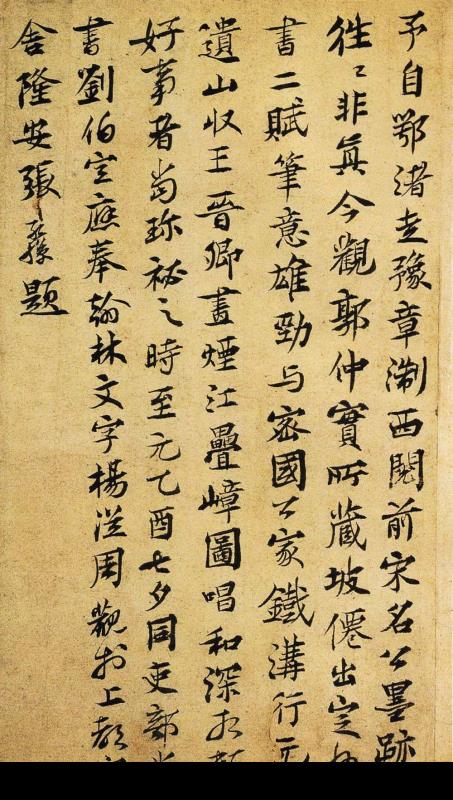 予自鄂渚走豫章淛西閱前宋名公墨跡
往〻非真今觀郭仲實所藏坡僊出定
書二賦筆意雄勁与密國公家鐵溝行元
遺山收王晉卿畫煙江疊嶂圖唱和深相
好事者尚珎祕之時至元乙酉七夕同吏部尚
書劉伯宣應奉翰林文字楊從周觀於上都
舍隆安張孔孫題